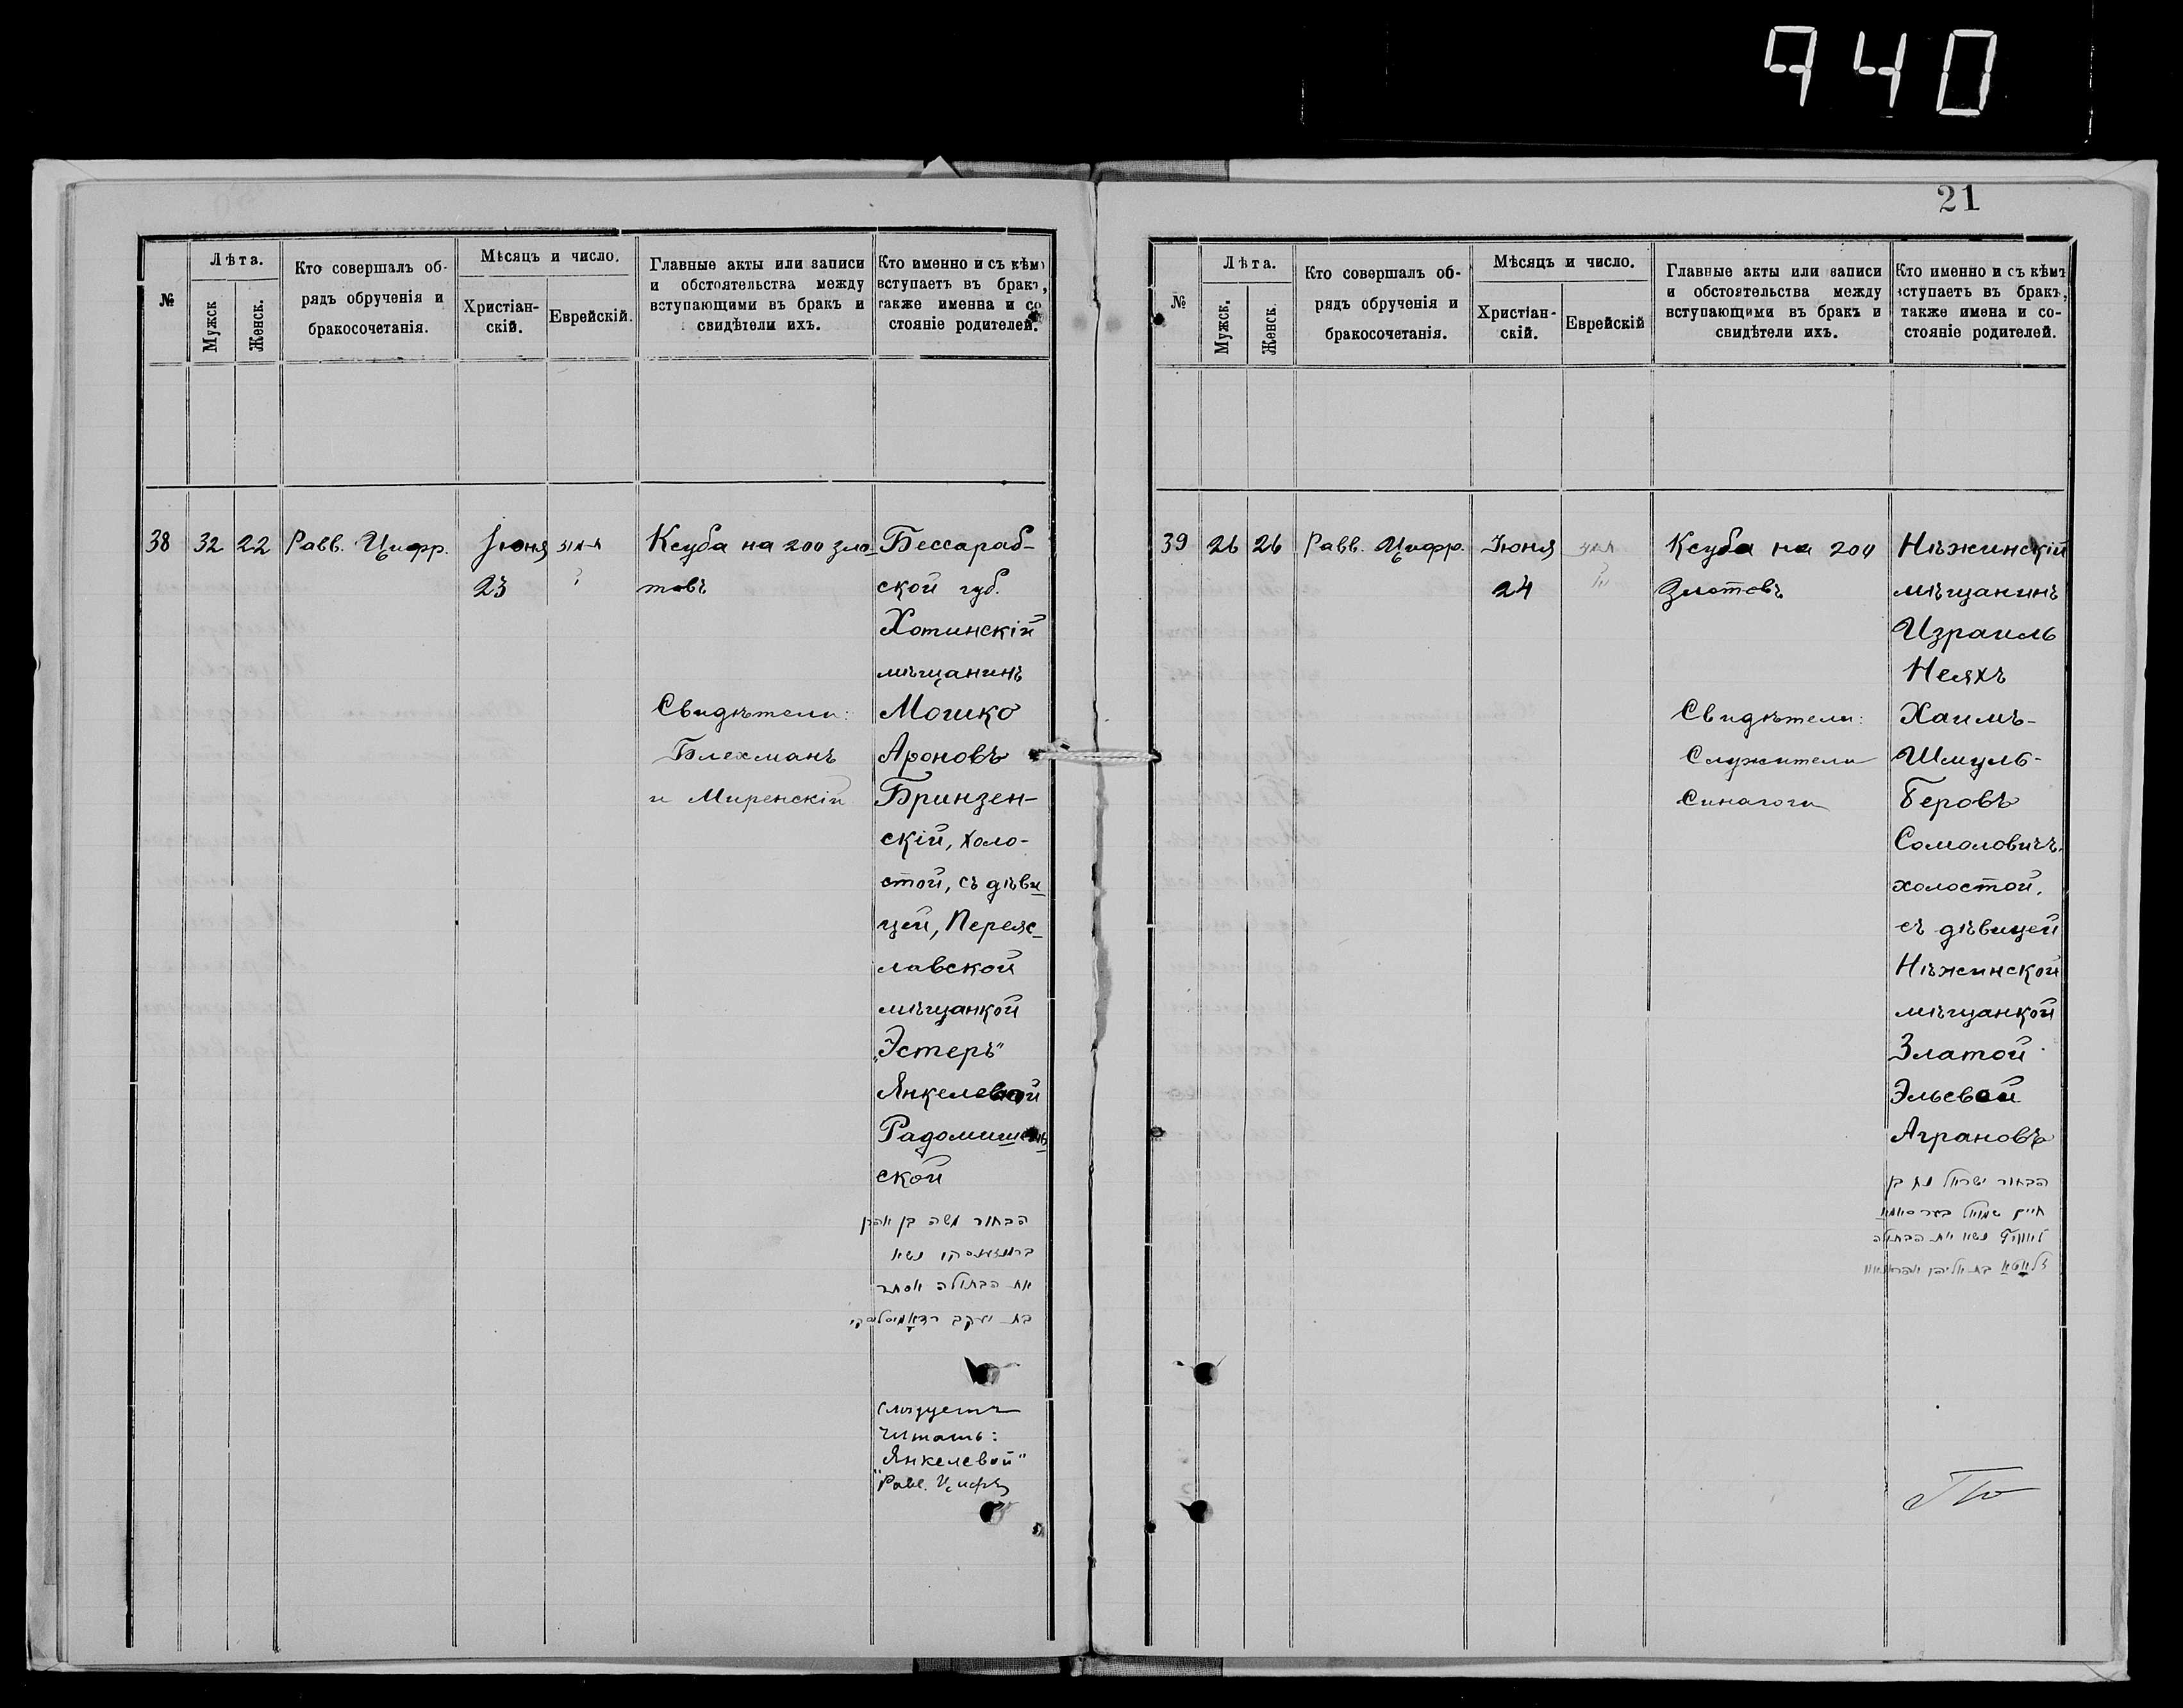 940
21
№
Лѣта.
Мужск
Женск.
Кто совершалъ об-
рядъ обрученія и
бракосочетанія.
Мѣсяцъ и число.
Христіан-
скій.
Еврейскій.
Главные акты или записи
и обстоятельства между
вступающими въ бракъ и
свидѣтели ихъ.
Кто именно и съ кѣмъ
вступаетъ въ бракъ,
также имена и со
стояніе родителей.
38
32
22
Равв. Цифр.
Іюня
23
Ксуба на 200 зло-
товъ
Свидѣтели:
Блехманъ
и Миренскій
Бессараб-
ской губ.
Хотинскій
мѣщанинъ
Мошко
Ароновъ
Бринзен-
скій, холо-
стой, съ дѣви
цей, Переяс-
лавской
мѣщанкой
„Эстеръ"
Янкелевой
Радомишель
ской
הבחור משה בן אהרן
נשא
את הבתולה אסתר
בת יעקב
слѣдуетъ
читать:
„Янкелевой"
Равв. Цифръ
№
Лѣта.
Мужск.
Женск.
Кто совершалъ об-
рядъ обрученія и
бракосочетанія.
Мѣсяцъ и число.
Христіан-
скій.
Еврейскій
Главные акты или записи
и обстоятельства между
вступающими въ бракъ и
свидѣтели ихъ.
Кто именно и съ кѣмъ
вступаетъ въ бракъ,
также имена и со-
стояніе родителей.
39
26
26
Равв. Цифр.
Іюня
24
Ксуба на 200
Злотовъ
Свидѣтели:
Служители
Синагоги
Нѣжинскій
мѣщанинъ
Израиль
Неяхъ
Хаимъ-
Шмуль-
Беровъ
Сомоловичъ,
холостой,
съ дѣвицей
Нѣжинской
мѣщанкой
Златой
Эльевой
Аграновъ
הבחור ישראל נח בן
חיים שמואל בער
נשא את הבתולה
זלאטא בת אליהו